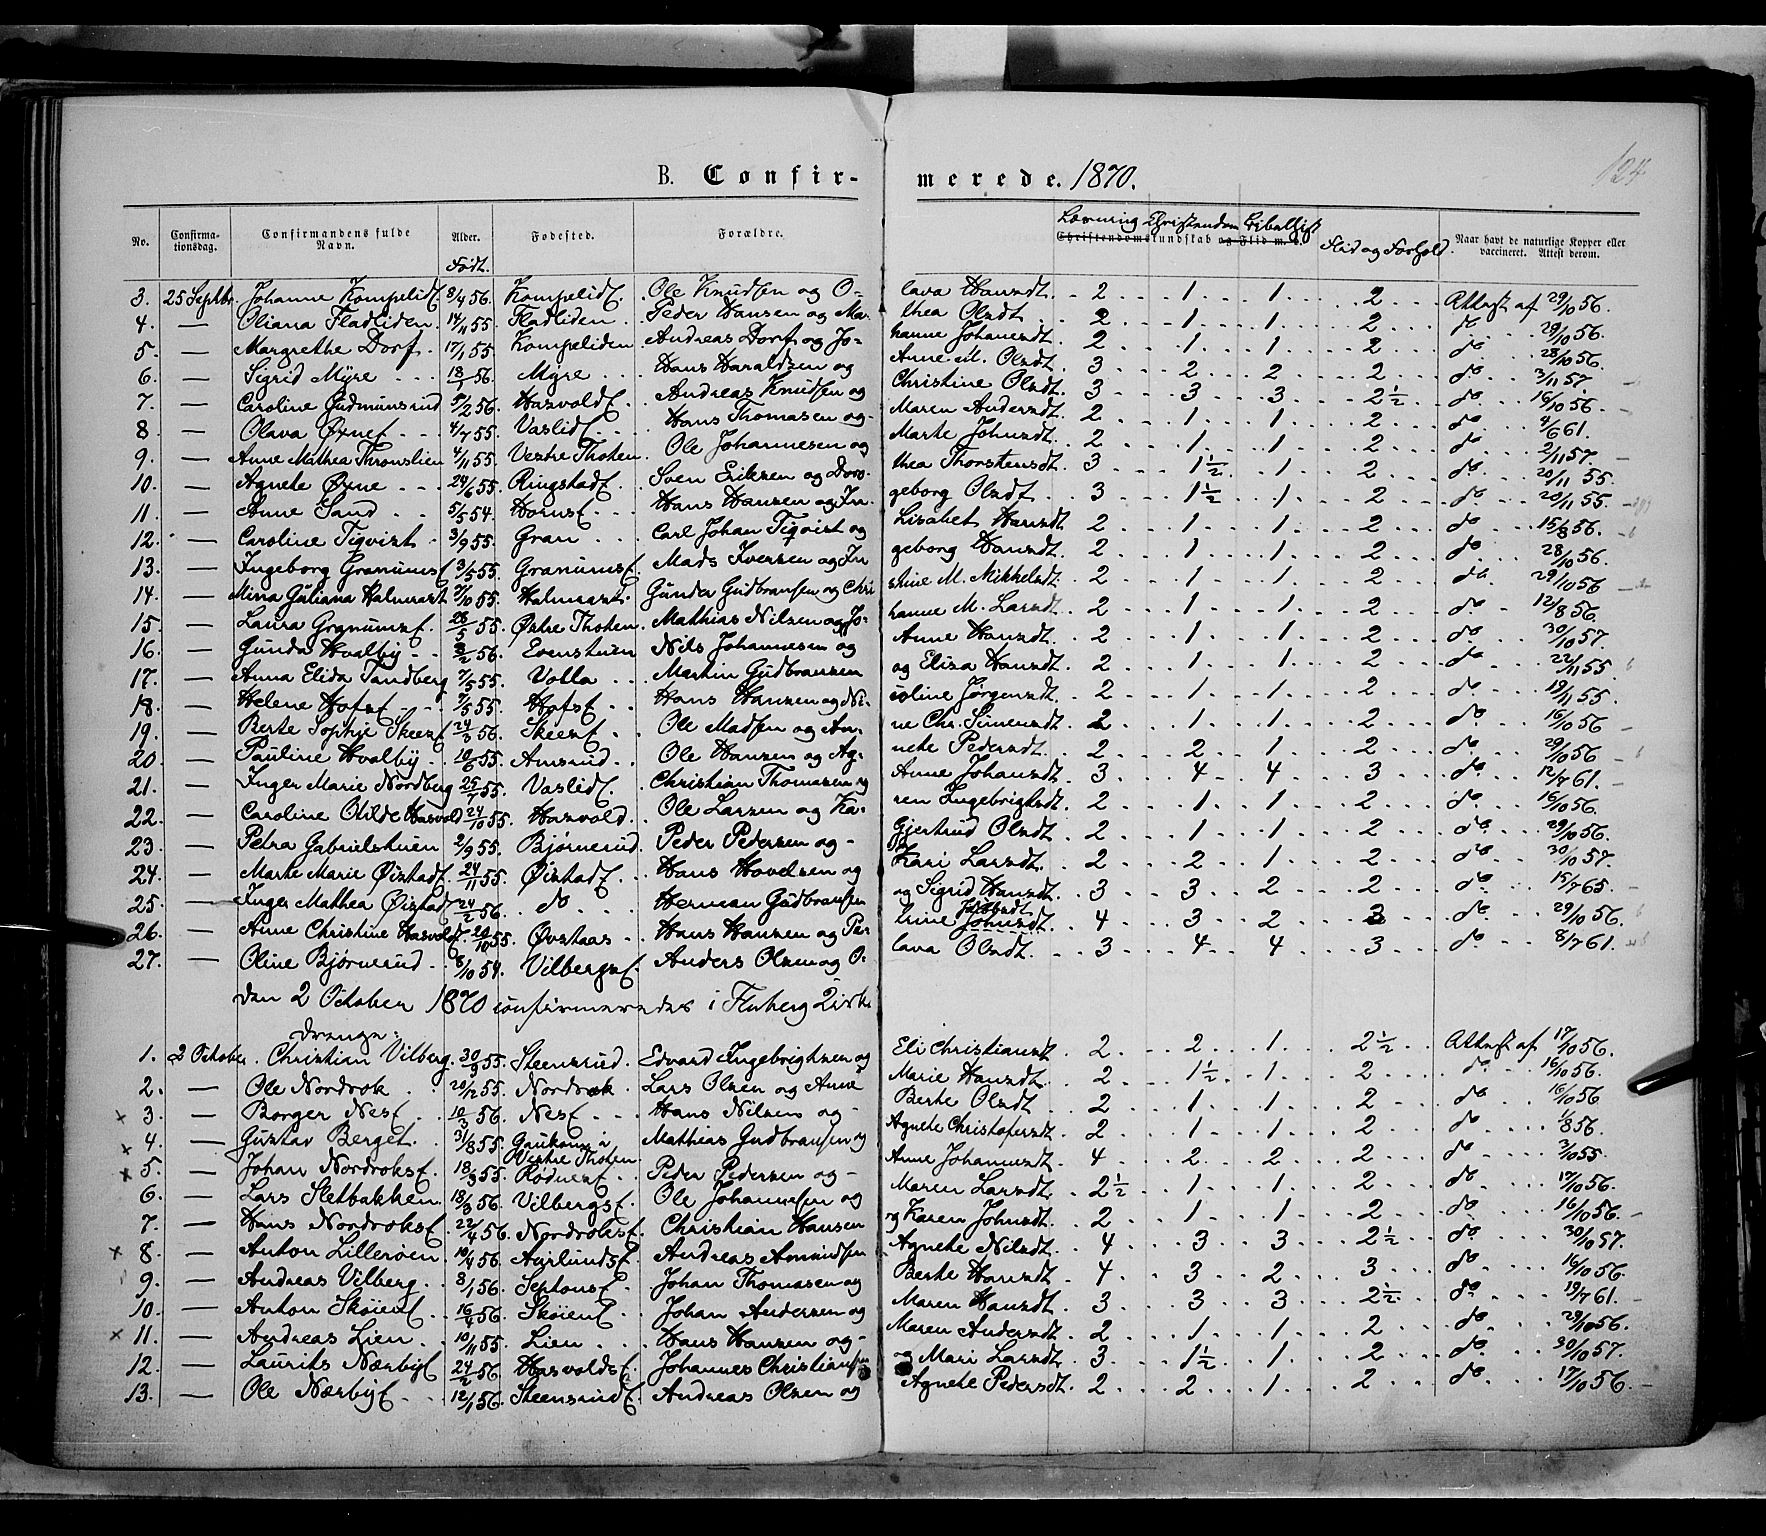 B. Confir- merede. 1870. 124
No. Confirma-tionsdag. Confirmandens fulde Navn. Alder. Født. Fødested. Forældre. Christendomskundskab og Flid m. v. Lærning Christendom Bibelhist Flid og Forhold. Naar havt de naturlige Kopper eller vaccineret. Attest derom.
3. 25 Septbr. Johanne KompelidE. 8/4 56. KompelidE. Ole Knudsen og O- lava Hansdt. 2 1 1 2 Attest af 29/10 56.
4. — Oliana Fladliden. 14/11 55. Fladliden Peder Hansen og Ma- thea Olsdt. 2 1 1 2 do 29/10 56.
5. — Margrethe Dorf. 17/1 55. Kompeliden Andreas Dorf og Jo- hanne Johansdt. 2 1 1 2 do 28/10 56.
6. — Sigrid Myre 18/1 56. Myre Hans Haraldsen og Anne M. Olsdt. 3 2 2 2 do 3/11 57
7. — Caroline Gudmunsrud 5/2 56. HasvoldE. Andreas Knudsen og Christine Olsdt. 3 3 3 2½ do 16/10 56.
8. — Olava ØxneE. 4/7 55. VaslidE. Hans Thomasen og Maren Andersdt. 2 1 1 2 do 4/6 61.
9. — Anne Mathea Thronslien 4/11 55. Vestre Thoten Ole Johannesen og Marte Johnsdt. 2 1 1 2 do 2/11 57
10. — Agnete Øxne 24/6 55. RingstadE. Sven Eriksen og Doro- thea Thorstensdt. 3 1½ 1 2 do 20/11 55.
11. — Anne Sand 5/5 54. HornsE. Hans Hansen og In- geborg Olsdt. 3 1½ 1 2 do 20/11 55.
12. — Caroline Tiqvist 3/9 55. Gran Carl Johan Tiqvist og Lisabet Hansdt. 2 1 1 2 do 15/8 56.
13. — Ingeborg GranumsE. 3/5 55. GranumsE. Mads Iversen og In- geborg Hansdt. 2 1 1 2 do 28/10 56.
14. — Mina Juliana Halmrast 7/10 55. Halmrast. Gunder Gudbransen og Chri stine M. Mikkelsdt. 2 1 1 2 do 29/10 56
15. — Laura GranumsE. 28/5 55. Østre Thoten Mathias Nilsen og Jo- hanne M. Larsdt. 2 1 1 2 do 12/8 56.
16. — Gunda Hvalby 8/2 56. Evenstuen Nils Johannesen og Anne Hansdt. 2 1 1 2 do 30/10 57.
17. — Anna Elida Sandberg 7/5 55. Volla Martin Gudbransen og Eliza Hansdt. 2 1 1 2 do 22/11 55.
18. — Helene HofsE. 7/5 55. HofsE. Hans Hansen og Ni- coline Jørgensdt. 2 1 1 2 do 19/11 55.
19. — Berte Sophje SkeenE 24/3 56. SkeenE. Ole Madsen og An- ne Chr. Simensdt. 2 1 1 2 do 16/10 56
20. — Pauline Hvalby 10/6 55. Amsrud Ole Hansen og Ag- nete Pedersdt. 2 2 1 2 do 29/10 56
21. — Inger Marie Nordberg 25/7 55. VaslidE. Christian Thomasen og Anne Johansdt. 3 4 4 3 do 12/7 61.
22. — Caroline Otilde Hasvold 24/10 55. Hasvold. Ole Larsen og Ka- ren Ingebrigtsdt. 2 1 1 2 do 16/10 56.
23. — Petra Gabrielstuen 2/9 55. Bjørnerud. Peder Pedersen og Gjertrud Olsdt. 2 1 1 2 do 29/10 56.
24. — Marte Marie ØistadE. 24/11 55. ØistadE. Hans Hovelsen og Kari Larsdt. 2 2 1 2 do 30/10 57.
25. — Inger Mathea Øistad 24/2 56. do Herman Gudbransen og Sigrid Hansdt. 3 3 2 2 do 15/7 65.
26. — Anne Christine HasvoldE. 29/10 55. Øvstaas Hans Hansen og Pe- trine Johnsdt. 4 3 2 3 do 29/10 56.
27. — Oline Bjørnerud 8/10 54. VilbergsE. Anders Olsen og O- lava Olsdt. 3 4 4 3 do 8/7 61.
Den 2 October 1870 confirmeredes i Fluberg Kirke
Drenge:
1. 2 October. Christian Vilberg. 30/9 55. Steensrud. Edvard Ingebrigtsen og Eli Christiansdt 2 2 1 2½ Attest af 17/10 56.
2. — Ole Nordrok 20/12 55. Nordrok Lars Olsen og Anne Marie Hansdt. 2 1½ 1 2 do 16/10 56.
x 3. — Borger NesE. 10/3 56. NesE. Hans Nilsen og Berte Olsdt 2 1 1 2 do 16/10 56
x 4. — Gustav Berget. 31/8 55. Gaukom i Vestre Thoten Mathias Gudbransen og Agnete Christofersdt. 2 1 1 2 do 1/8 56.
x 5. — Johan NordroksE. 18/9 55. RødnesE. Peder Pedersen og Anne Johannesdt. 4 2 2 2 do 3/10 55.
6. — Lars Sletbakken 18/3 56. VilbergsE. Ole Johannesen og Maren Larsdt. 2½ 1 1 2 do 17/10 56.
7. — Hans NordroksE. 22/4 56. NordroksE. Christian Hansen og Karen Johnsdt. 2 1 1 2 do 16/10 56.
x 8. — Anton Lillerøen 10/4 56. AurlundsE. Andreas Amundsen Agnete Nilsdt. 4 3 3 2½ do 30/10 57.
9. — Andreas Vilberg 8/1 56. SeptonsE. Johan Thomasen og Berte Hansdt. 4 3 2 3 do 16/10 56.
10. — Anton SkøienE. 16/4 56. SkøienE. Johan Andersen og Maren Hansdt. 3 3 3 2½ do 19/7 61.
x 11. — Andreas Lien 10/11 55. Lien Hans Hansen og Maren Andersdt. 2 1 1 2 do 29/10 56.
12. — Laurits NærbyE 24/2 56. HasvoldsE. Johannes Christiansen og Mari Larsdt. 3 1½ 1 2 do 30/10 57.
13. — Ole NærbyE. 12/1 56. SteensrudE. Andreas Olsen og Agnete Pedersdt. 2 2 1 2 do 17/10 56.